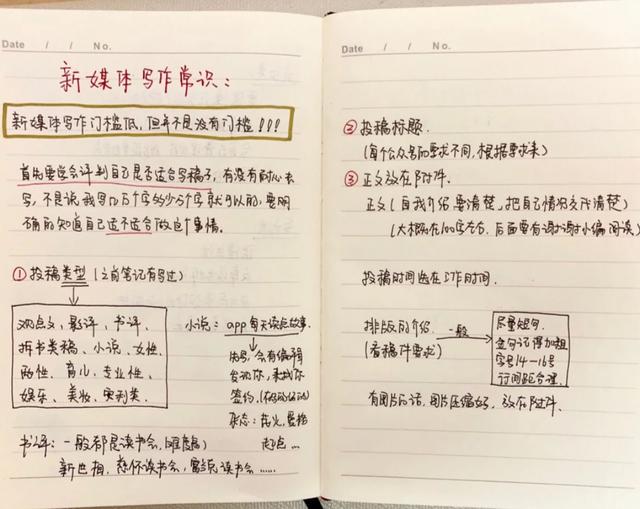 Date / / No.
新媒体写作常识：
新媒体写作门槛低，但并不是没有门槛！！！
首先要学会评判自己是否适合写稿子，有没有耐心去
写，不是说我写几万个字的少少个字就可以的，要明
确的知道自己适不适合做这个事情。
① 投稿类型（之前笔记有写过）
观点文、影评、书评、
拆书类稿、小说、女性、
两性、育儿、专业性、
娱乐、美妆、案例类、
小说：app每天读点故事
内容，会有编辑
发现你，来找你
签约，
杂志：花火，爱格
起 ...
书评：一般都是读书会，
新世相，慈怀读书会，富兰克读书会……
Date / / No.
② 投稿标题.
（每个公众号的要求不同，根据要求来）
③ 正文放在附件.
正文（自我介绍要清楚，把自己情况交代清楚）
（大概在100字左右，后面要有谢谢小编阅读）
投稿时间选在工作时间.
排版的介绍. 一般
（看稿件要求）
尽量短句.
金句记得加粗
字号14—16号
行间距合理.
有图片的话，图片压缩好，放在附件.